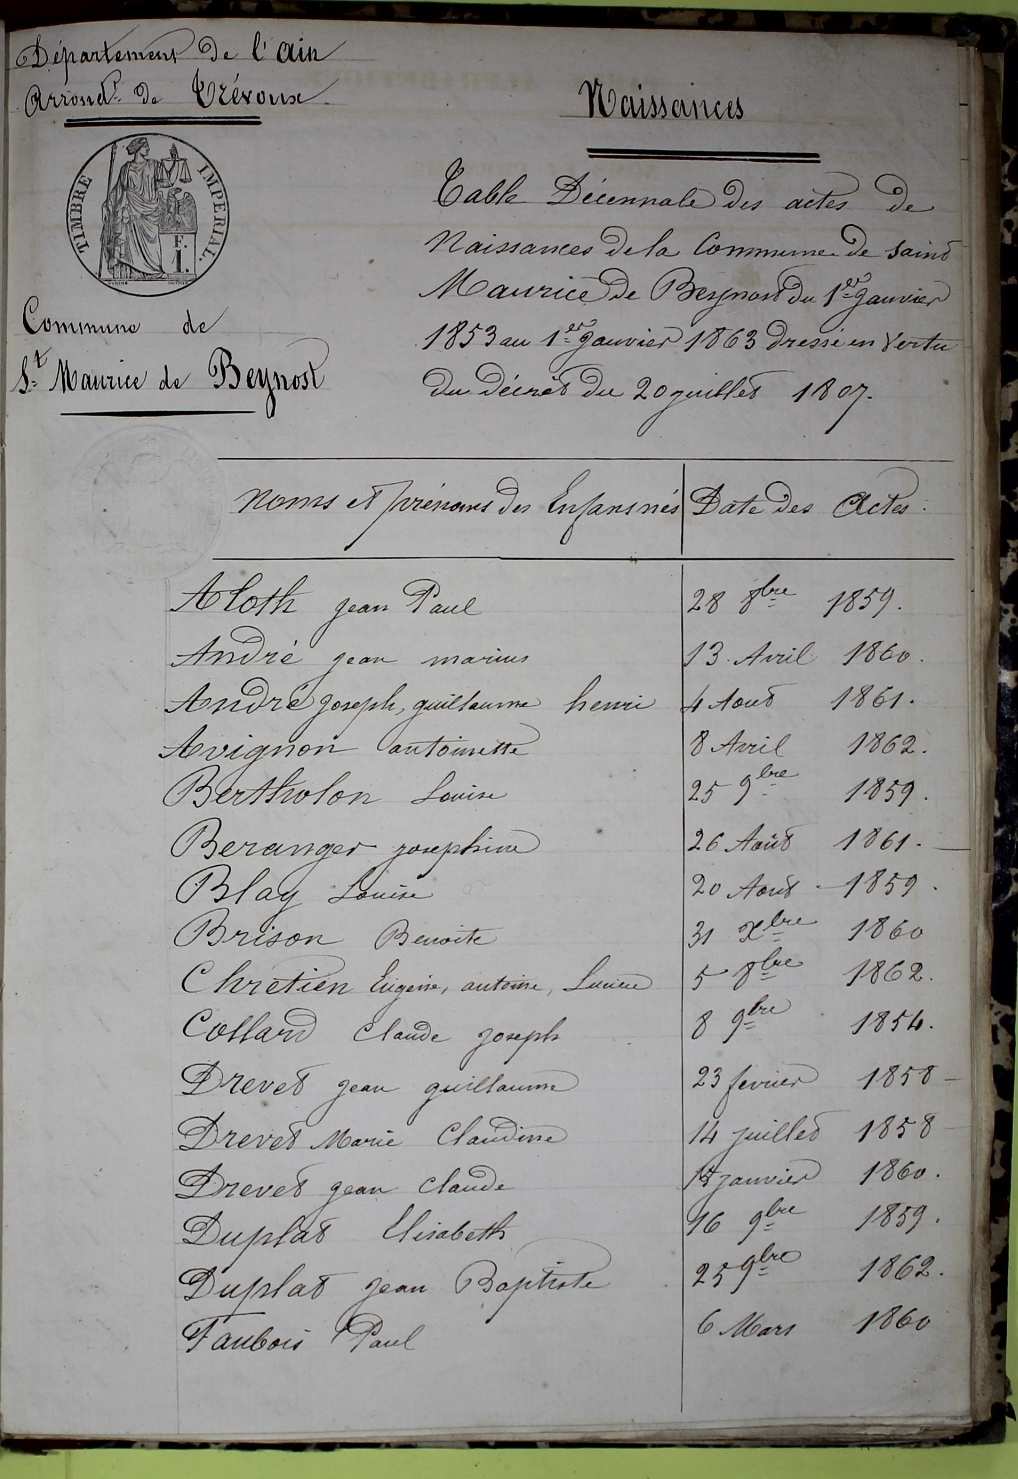 Département de l'Ain
Arrond.t de Trévoux
TIMBRE IMPÉRIAL
E. F.
I.
Commune de
St Maurice de Beynost
Naissances
Table Décennale des actes de
Naissances de la Commune de Saint
Maurice de Beynost du 1er Janvier
1853 au 1er Janvier 1863 dressé en vertu
du décret du 20 juillet 1807.
Noms et prénoms des Enfans nés Date des Actes.
Aloth jean Paul 28 8bre 1859.
André jean marius 13 Avril 1860.
André joseph, guillaume henri 4 Aout 1861.
Avignon antoinette 8 Avril 1862.
Bertholon Louise 25 9bre 1859.
Beranger josephine 26 Août 1861.
Blay Louise 20 Aout 1859.
Brison Benoite 31 Xbre 1860
Chretien Eugène, antoine, 5 8bre 1862.
Collard Claude joseph 8 9bre 1854.
Drevet jean guillaume 23 fevrier 1858
Drevet Marie Claudine 14 juillet 1858
Drevet jean Claude janvier 1860.
Duplat Elisabeth 16 9bre 1859.
Duplat jean Baptiste 25 9bre 1862.
Faubois Paul 6 Mars 1860